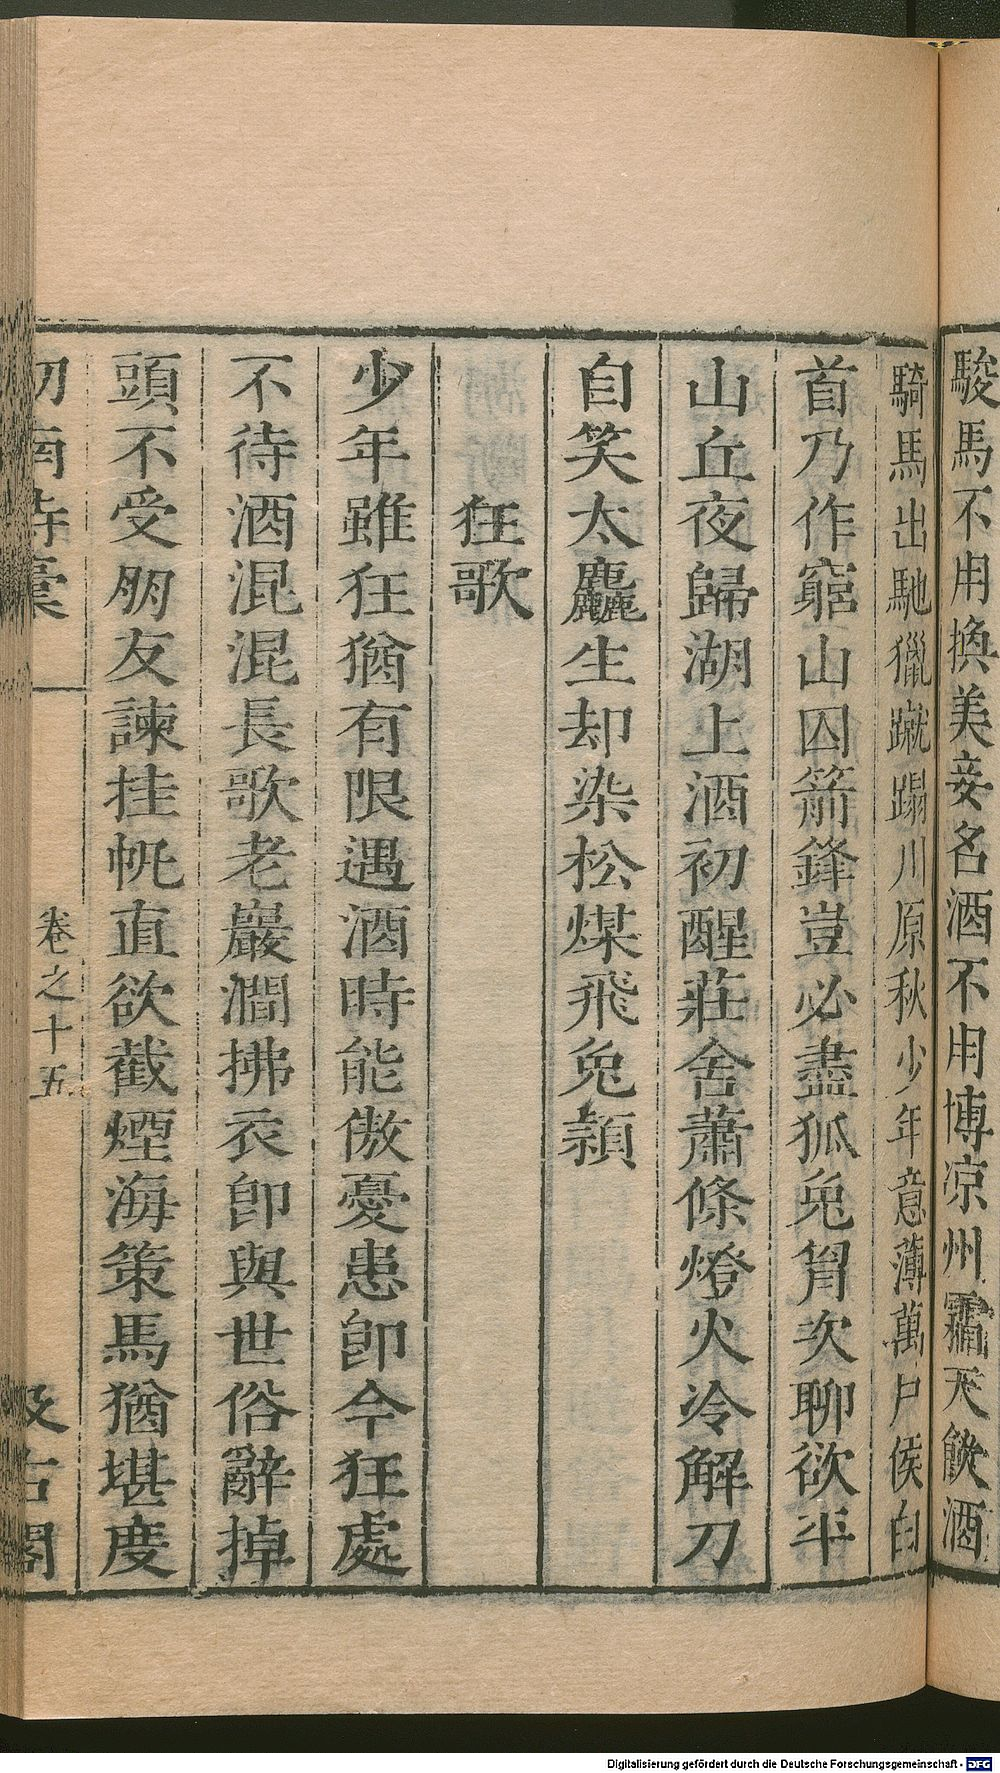 駿馬不用換美妾名酒不用博凉州霜天飲酒
騎馬出馳獵蹴蹋川原秋少年意薄萬戶侯白
首乃作窮山囚箭鋒豈必盡狐兔胷次聊欲平
山丘夜歸湖上酒初醒莊舍蕭條燈火冷解刀
自笑太麤生却染松煤飛兔頴
狂歌
少年雖狂猶有限遇酒時能傲憂患卽今狂處
不待酒混混長歌老巖澗拂衣卽與世俗辭掉
頭不受朋友諫挂帆直欲截煙海策馬猶堪度
劒南詩稾
卷之十五
汲古閣
Digitalisierung gefördert durch die Deutsche Forschungsgemeinschaft - DFG